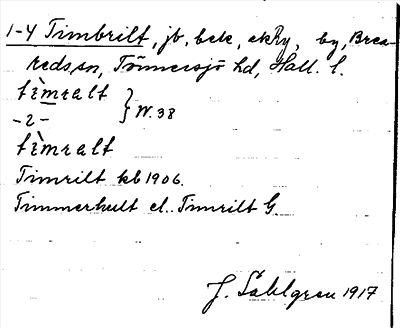 1-4 Timbrilt, jb, bek, ekKy, by, Brea-
reds sn, Tönnersjö hd, Hall. l.
tìmralt
-2- } W. 38
tìmralt
Timrilt kb 1906.
Timmerhult el. Timrilt G.
J. Sahlgren 1917